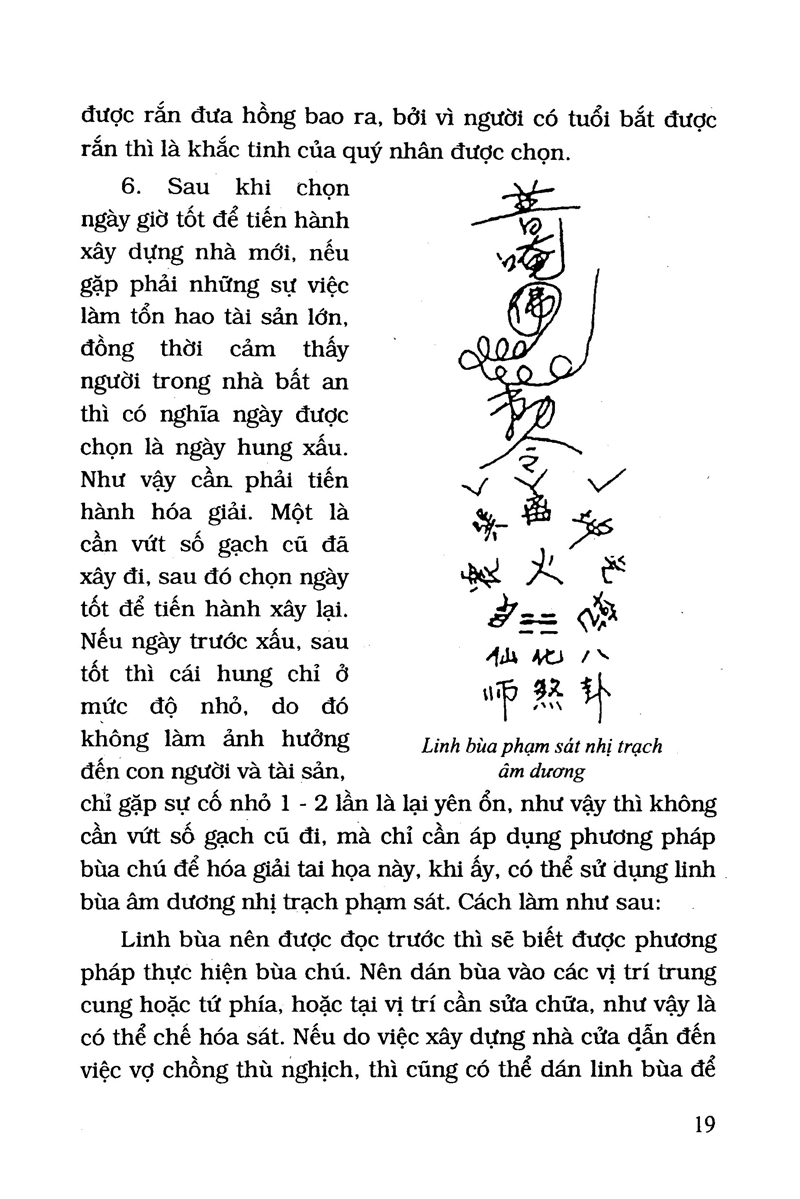 được rắn đưa hồng bao ra, bởi vì người có tuổi bắt được
rắn thì là khắc tinh của quý nhân được chọn.
6. Sau khi chọn
ngày giờ tốt để tiến hành
xây dựng nhà mới, nếu
gặp phải những sự việc
làm tổn hao tài sản lớn,
đồng thời cảm thấy
người trong nhà bất an
thì có nghĩa ngày được
chọn là ngày hung xấu.
Như vậy cần phải tiến
hành hóa giải. Một là
cần vứt số gạch cũ đã
xây đi, sau đó chọn ngày
tốt để tiến hành xây lại.
Nếu ngày trước xấu, sau
tốt thì cái hung chỉ ở
mức độ nhỏ, do đó
không làm ảnh hưởng
đến con người và tài sản,
佛
令
火
☵☷
仙 化 八
师 煞 卦
Linh bùa phạm sát nhị trạch
âm dương
chỉ gặp sự cố nhỏ 1 - 2 lần là lại yên ổn, như vậy thì không
cần vứt số gạch cũ đi, mà chỉ cần áp dụng phương pháp
bùa chú để hóa giải tai họa này, khi ấy, có thể sử dụng linh
bùa âm dương nhị trạch phạm sát. Cách làm như sau:
Linh bùa nên được đọc trước thì sẽ biết được phương
pháp thực hiện bùa chú. Nên dán bùa vào các vị trí trung
cung hoặc tứ phía, hoặc tại vị trí cần sửa chữa, như vậy là
có thể chế hóa sát. Nếu do việc xây dựng nhà cửa dẫn đến
việc vợ chồng thù nghịch, thì cũng có thể dán linh bùa để
19